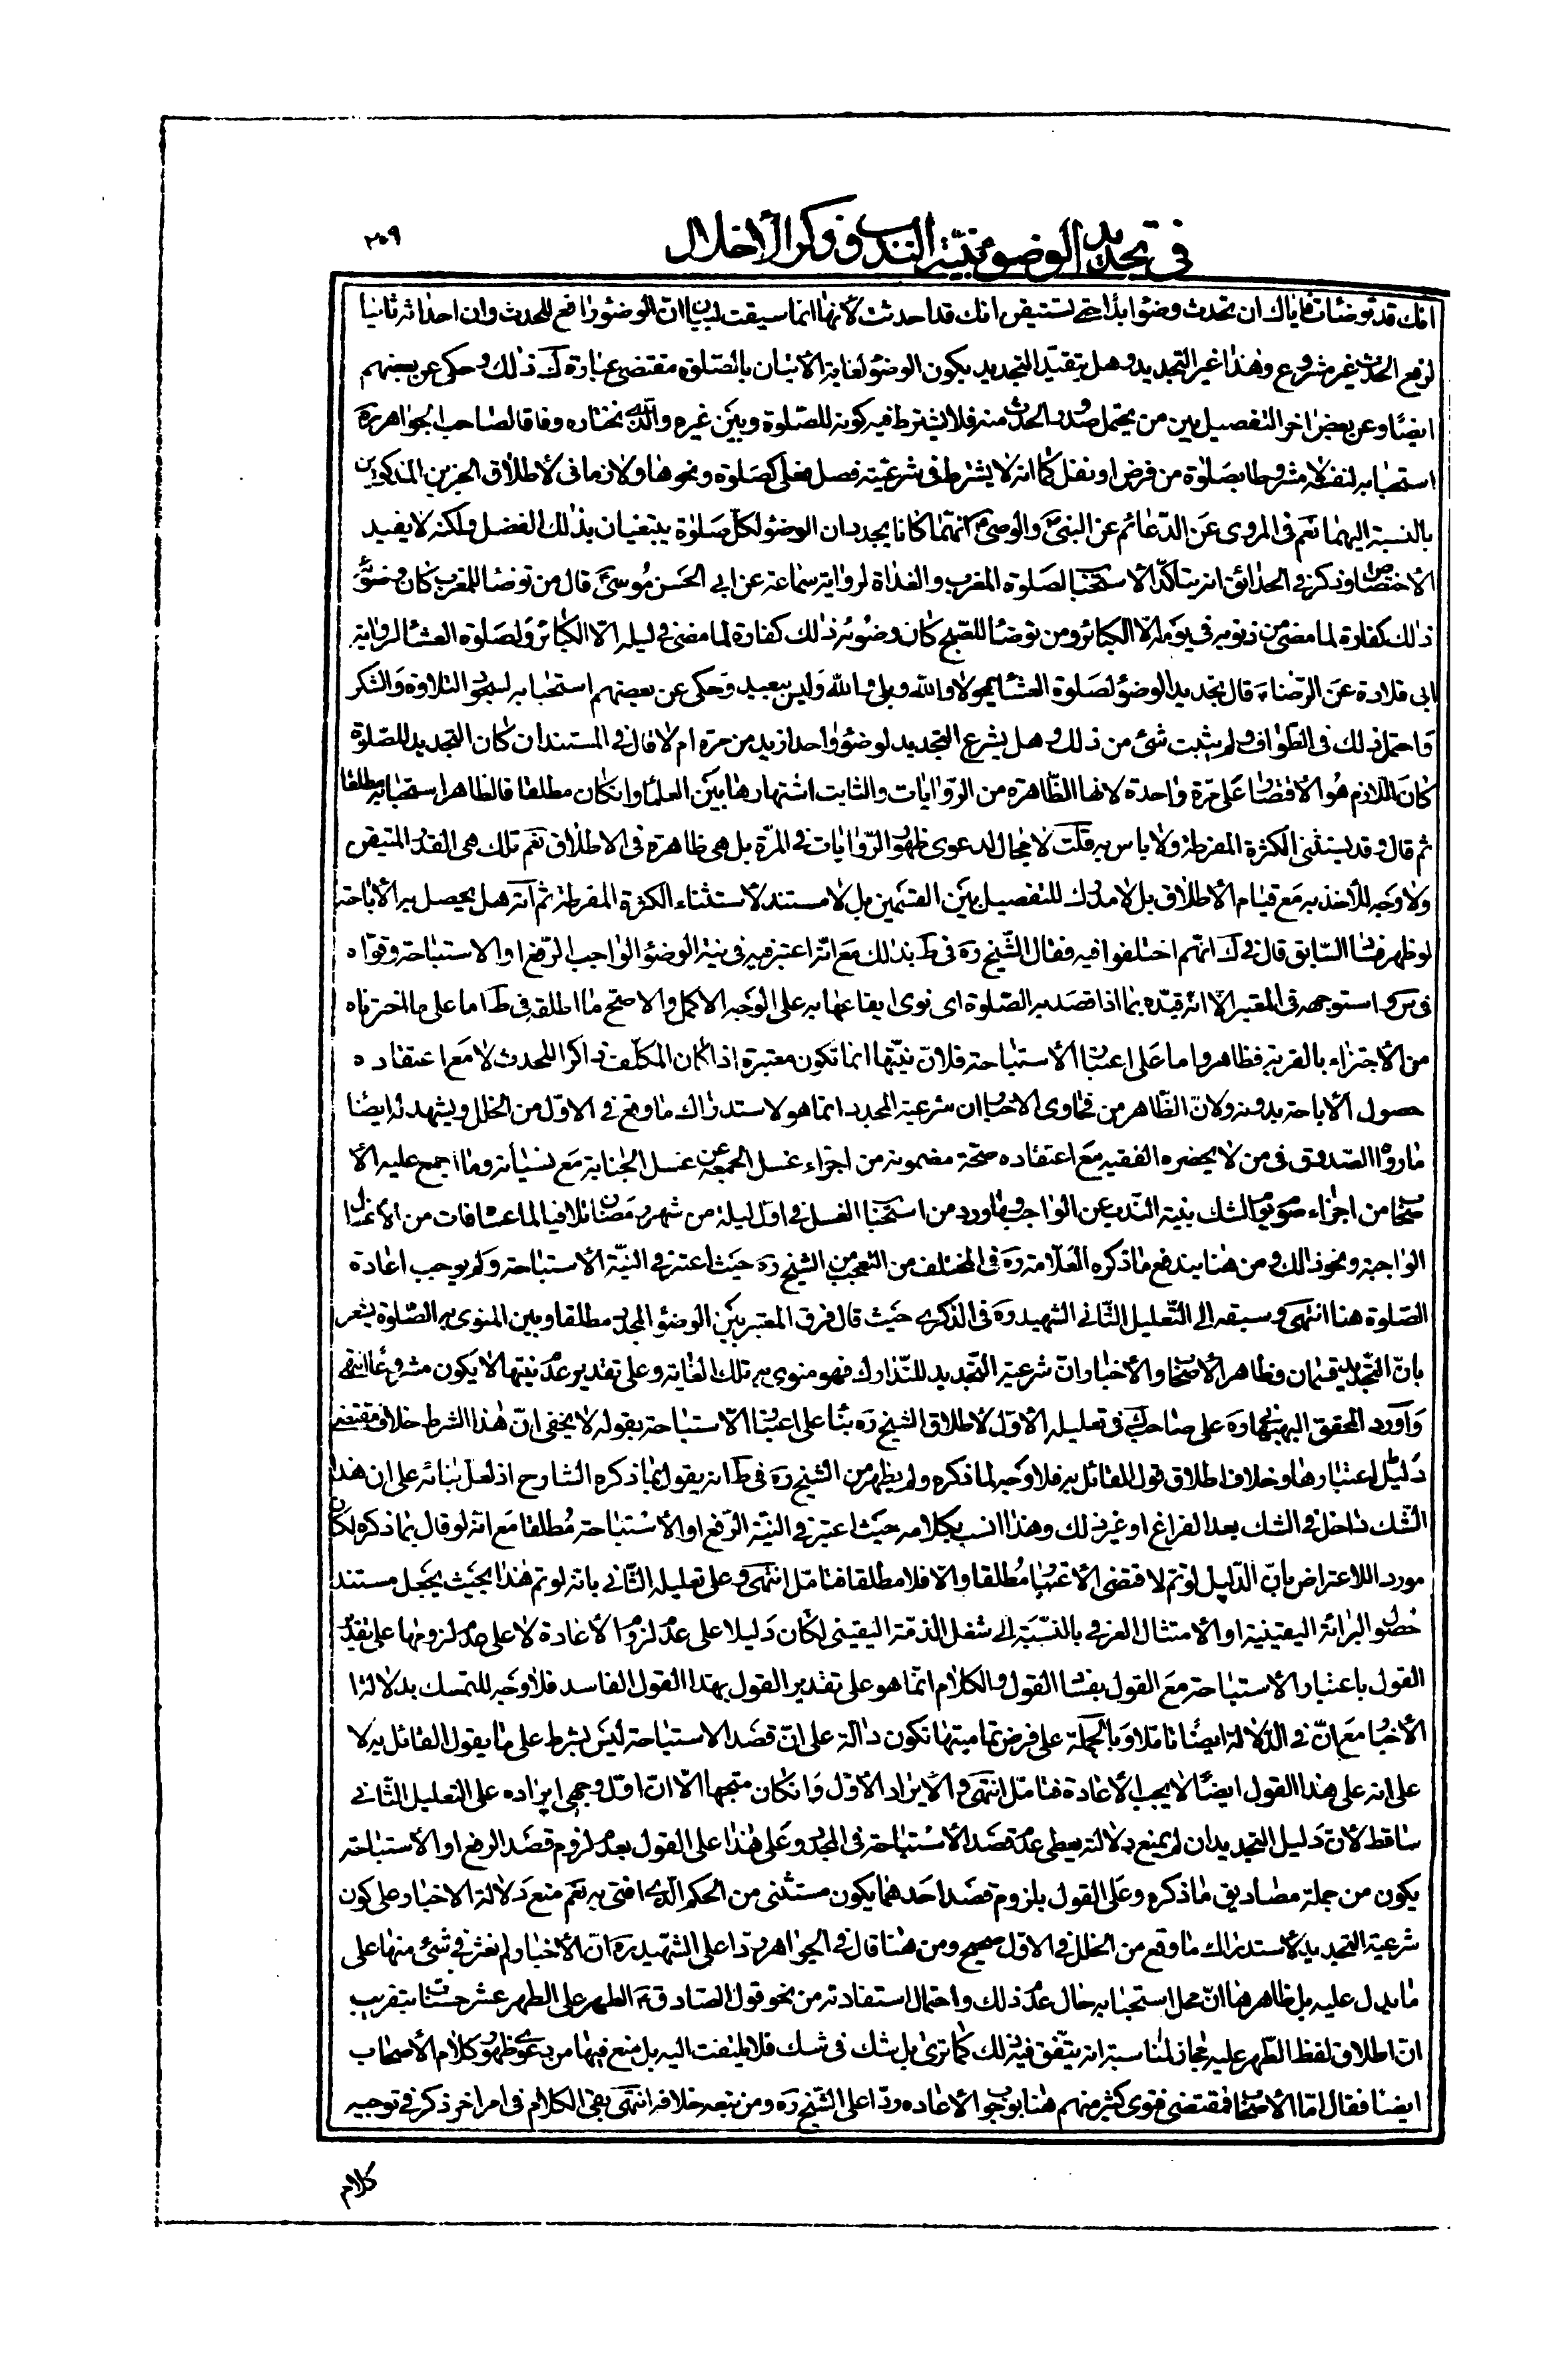 في تجديد الوضوء بنية الندب وذكر الاخلال
٢٠٩
انك قد توضات فاياك ان تحدث وضوء ابدا حتى تستيقن انك قد احدثت لانها انما سيقت لبيان ان الوضوء رافع للحدث وان احداثه ثانيا
لرفع الحدث غير مشروع وهذا غير التجديد وهل يتقيد التجديد بكون الوضوء لغاية الاتيان بالصلوة مقتضى عبارة ك ذلك وحكى عن بعضهم
ايضا وعن بعض اخر التفصيل بين من يحتمل صدور الحدث منه فلا يشترط فيه كونه للصلوة وبين غيره والذى نختاره وفاقا لصاحب الجواهر ره
استحبابه لنفسه لا مشروطا بصلوة من فرض او نفل كما انه لا يشترط في شرعيته فصل فعلى كصلوة ونحوها ولا زمانى لاطلاق الخبرين المذكورين
بالنسبة اليهما نعم في المروى عن الدعائم عن النبى ص والوصى ع انهما كانا يجددان الوضوء لكل صلوة يبتغيان بذلك الفضل ولكنه لا يفيد
الاختصاص وذكر في الحدائق انه يتاكد الاستحباب لصلوة المغرب والغداة لرواية سماعة عن ابي الحسن موسى ع قال من توضا للمغرب كان وضوئه
ذلك كفارة لما مضى من ذنوبه في يومه الا الكبائر ومن توضا للصبح كان وضوئه ذلك كفارة لما مضى في ليله الا الكبائر ولصلوة العشاء لرواية
ابي قلادة عن الرضا ع قال تجديد الوضوء لصلوة العشاء يمحو لا والله وبلى والله وليس ببعيد وحكى عن بعضهم استحبابه لسجود التلاوة والشكر
واحتمل ذلك في الطواف ولم يثبت شئ من ذلك وهل يشرع التجديد لوضوء واحد ازيد من مرة ام لا قال في المستند ان كان التجديد للصلوة
كان اللازم هو الاقتصار على مرة واحدة لانها الظاهرة من الروايات والثابت اشتهارها بين العلماء وان كان مطلقا فالظاهر استحبابه مطلقا
ثم قال وقد يستثنى الكثرة المفرطة ولا باس به قلت لا مجال لدعوى ظهور الروايات في المرة بل هى ظاهرة في الاطلاق نعم تلك هى القدر المتيقن
ولا وجه للاخذ به مع قيام الاطلاق بل لا مدرك للتفصيل بين القسمين بل لا مستند لاستثناء الكثرة المفرطة ثم انه هل يحصل به الاباحة
لو ظهر فساد السابق قال في ك انهم اختلفوا فيه فقال الشيخ ره في ط بذلك مع انه اعتبر فيه في نية الوضوء الواجب الرفع او الاستباحة وقواه
في س واستوجهه في المعتبر الا انه قيده بما اذا قصد به الصلوة اى نوى ايقاعها به على الوجه الاكمل والاصح ما اطلقه في ط اما على ما اخترناه
من الاجتزاء بالقربة فظاهر واما على اعتبار الاستباحة فلان نيتها انما تكون معتبرة اذا كان المكلف ذاكرا للحدث لا مع اعتقاده
حصول الاباحة بدونه ولان الظاهر من فحاوى الاخبار ان شرعية المجدد انما هو لاستدراك ما وقع في الاول من الخلل ويشهد له ايضا
ما رواه الصدوق في من لا يحضره الفقيه مع اعتقاده صحة مضمونه من اجزاء غسل الجمعة عن غسل الجنابة مع نسيانه وما اجمع عليه الا
صحاب من اجزاء صوم يوم الشك بنية الندب عن الواجب وما ورد من استحباب الغسل في اول ليلة من شهر رمضان تلافيا لما عساه فات من الاغسال
الواجبة ونحو ذلك ومن هنا يندفع ما ذكره العلامة ره في المختلف من التعجب من الشيخ ره حيث اعتبر في النية الاستباحة ولم يوجب اعادة
الصلوة هنا انتهى وسبقه الى التعليل الثاني الشهيد ره في الذكرى حيث قال فرق المعتبر بين الوضوء المجدد مطلقا وبين المنوى به الصلوة يشعر
بان التجديد قسمان فظاهر الاصحاب والاخبار ان شرعية التجديد للتدارك فهو منوى به تلك الغاية وعلى تقدير عدم نيتها لا يكون مشروعا انتهى
واورد المحقق البهبهاني ره على صاحب ك في تعليله الاول لاطلاق الشيخ ره بناء على اعتبار الاستباحة بقوله لا يخفى ان هذا الشرط خلاف مقتضى
دليل اعتبارها وخلاف اطلاق قول القائل به فلا وجه لما ذكره ولم يظهر من الشيخ ره في ط انه يقول بما ذكره الشارح اذ لعل بنائه على ان هذا
الشك داخل في الشك بعد الفراغ او غير ذلك وهذا انسب بكلامه حيث اعتبر في النية الرفع او الاستباحة مطلقا مع انه لو قال بما ذكره لكان
موردا للاعتراض بان الدليل لو تم لاقتضى الاعتبار مطلقا والا فلا مطلقا فتامل انتهى وعلى تعليله الثاني بانه لو تم هذا بحيث يجعل مستند
حصول البرائة اليقينية او الامتثال العرفي بالنسبة الى شغل الذمة اليقيني لكان دليلا على عدم لزوم الاعادة لا على عدم لزومها على تقدير
القول باعتبار الاستباحة مع القول بفساد القول والكلام انما هو على تقدير القول بهذا القول الفاسد فلا وجه للتمسك بدلالة
الاخبار مع ان في الدلالة ايضا تاملا وبالجملة على فرض تماميتها تكون دالة على ان قصد الاستباحة ليس بشرط على ما يقول القائل به لا
على انه على هذا القول ايضا لا يجب الاعادة فتامل انتهى والايراد الاول وان كان متجها الا ان اول وجهى ايراده على التعليل الثاني
ساقط لان دليل التجديد ان لم يمنع دلالته يعطى عدم قصد الاستباحة في المجدد وعلى هذا على القول بعدم لزوم قصد الرفع او الاستباحة
يكون من جملة مصاديق ما ذكره وعلى القول بلزوم قصد احدهما يكون مستثنى من الحكم الذى افتى به نعم منع دلالة الاخبار على كون
شرعية التجديد لاستدراك ما وقع من الخلل في الاول صحيح ومن هنا قال في الجواهر ردا على الشهيد ره ان الاخبار لم نعثر في شئ منها على
ما يدل عليه بل ظاهرها ان محل استحبابه حال عدم ذلك واحتمال استفادته من نحو قول الصادق ع الطهر على الطهر عشر حسنات بتقريب
ان اطلاق لفظ الطهر عليه مجاز لمناسبة انه يتفق فيه ذلك كما ترى بل شك في شك فلا يلتفت اليه بل منع فيها من دعوى ظهور كلام الاصحاب
ايضا فقال اما الاصحاب فمقتضى فتوى كثير منهم هنا بوجوب الاعاده ردا على الشيخ ره ومن تبعه خلافه انتهى بقى الكلام في امر اخر ذكر في توجيه
كلام